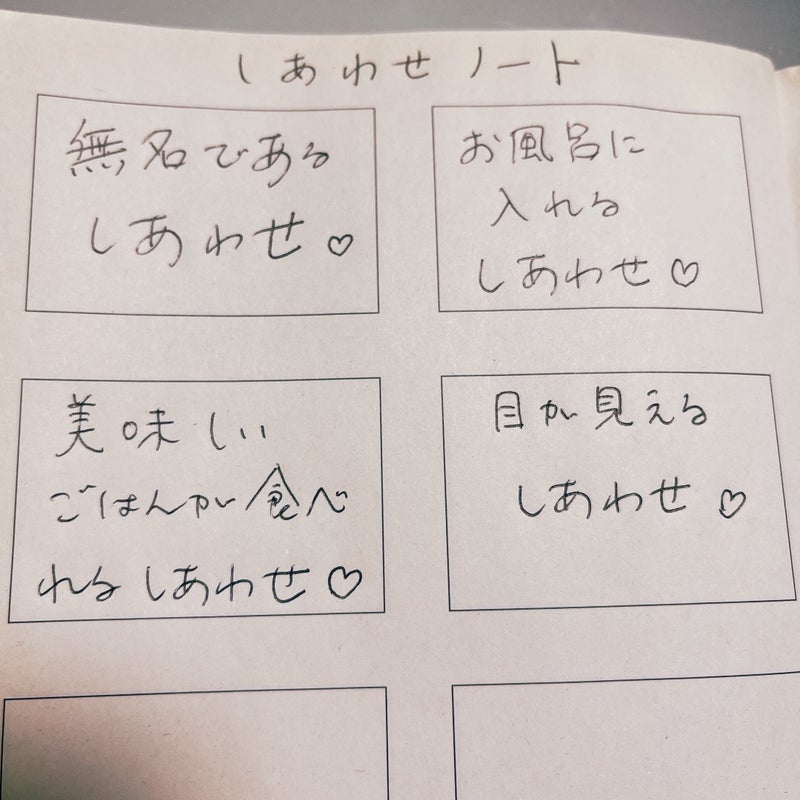 しあわせノート
無名である
しあわせ♡
お風呂に
入れる
しあわせ♡
美味しい
ごはんが食べ
れるしあわせ♡
目が見える
しあわせ♡